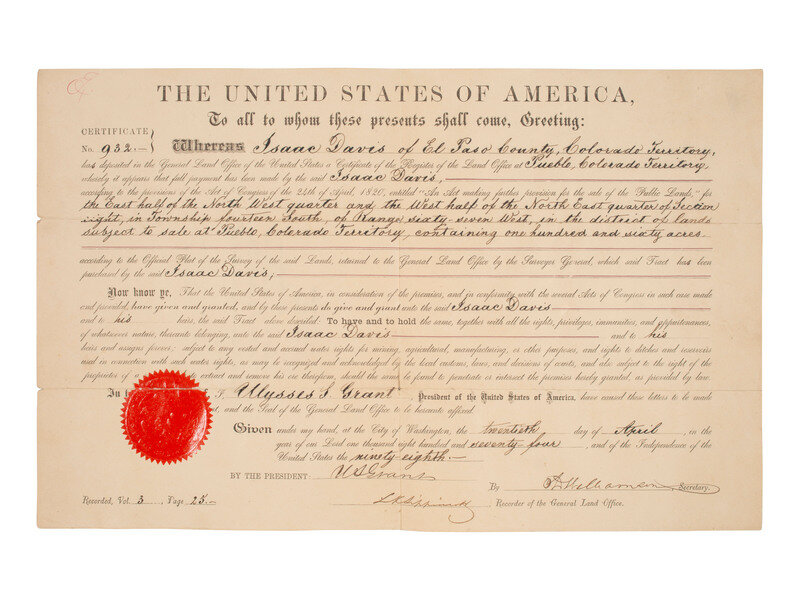 THE UNITED STATES OF AMERICA,
To all to whom these presents shall come, Greeting:
CERTIFICATE
No. 932.— } Whereas Isaac Davis of El Paso County, Colorado Territory,
has deposited in the General Land Office of the United States a Certificate of the Register of the Land Office at Pueblo, Colorado Territory
whereby it appears that full payment has been made by the said Isaac Davis,
according to the provisions of the Act of Congress of the 24th of April, 1820, entitled "An Act making further provision for the sale of the Public Lands," for
the East half of the North West quarter and the West half of the North East quarter of Section
eight, in Township fourteen South, of Range sixty seven West, in the district of lands
subject to sale at Pueblo, Colorado Territory, containing one hundred and sixty acres
according to the Official Plat of the Survey of the said Lands, returned to the General Land Office by the Surveyor General, which said Tract has been
purchased by the said Isaac Davis,
Now know ye, That the United States of America, in consideration of the premises, and in conformity with the several Acts of Congress in such case made
and provided, have given and granted, and by these presents do give and grant unto the said Isaac Davis
and to his heirs, the said Tract above described: To have and to hold the same, together with all the rights, privileges, immunities, and appurtenances,
of whatsoever nature, thereunto belonging, unto the said Isaac Davis and to his
heirs and assigns forever; subject to any vested and accrued water rights for mining, agricultural, manufacturing, or other purposes, and rights to ditches and reservoirs
used in connection with such water rights, as may be recognized and acknowledged by the local customs, laws, and decisions of courts, and also subject to the right of the
proprietor of a to extract and remove his ore therefrom, should the same be found to penetrate or intersect the premises hereby granted, as provided by law.
In I, Ulysses S. Grant President of the United States of America, have caused these letters to be made
and the Seal of the General Land Office to be hereunto affixed.
Given under my hand, at the City of Washington, the twentieth day of April, in the
year of our Lord one thousand eight hundred and seventy-four, and of the Independence of the
United States the ninety eighth.—
BY THE PRESIDENT: U.S. Grant
By Secretary.
Recorded, Vol. 3, Page 25.— Recorder of the General Land Office.